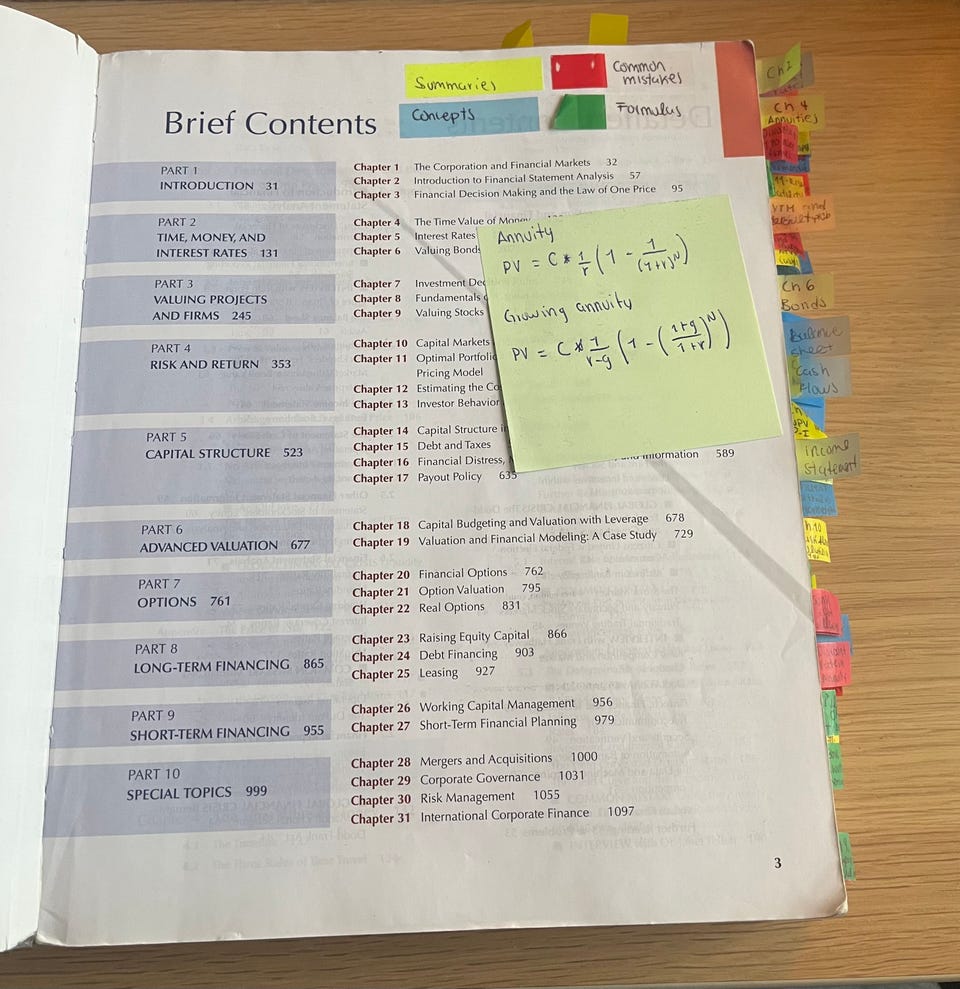 Summaries
Common
mistakes
Concepts
Formulas
Brief Contents
PART 1
INTRODUCTION 31
Chapter 1 The Corporation and Financial Markets 32
Chapter 2 Introduction to Financial Statement Analysis 57
Chapter 3 Financial Decision Making and the Law of One Price 95
PART 2
TIME, MONEY, AND
INTEREST RATES 131
Chapter 4 The Time Value of Money
Chapter 5 Interest Rates
Chapter 6 Valuing Bonds
PART 3
VALUING PROJECTS
AND FIRMS 245
Chapter 7 Investment
Chapter 8 Fundamentals
Chapter 9 Valuing Stocks
PART 4
RISK AND RETURN 353
Chapter 10 Capital Markets
Chapter 11 Optimal
Pricing Model
Chapter 12 Estimating the
Chapter 13 Investor Behavior
PART 5
CAPITAL STRUCTURE 523
Chapter 14 Capital Structure
Chapter 15 Debt and Taxes
Chapter 16 Financial Distress, Information 589
Chapter 17 Payout Policy 635
PART 6
ADVANCED VALUATION 677
Chapter 18 Capital Budgeting and Valuation with Leverage 678
Chapter 19 Valuation and Financial Modeling: A Case Study 729
PART 7
OPTIONS 761
Chapter 20 Financial Options 762
Chapter 21 Option Valuation 795
Chapter 22 Real Options 831
PART 8
LONG-TERM FINANCING 865
Chapter 23 Raising Equity Capital 866
Chapter 24 Debt Financing 903
Chapter 25 Leasing 927
PART 9
SHORT-TERM FINANCING 955
Chapter 26 Working Capital Management 956
Chapter 27 Short-Term Financial Planning 979
PART 10
SPECIAL TOPICS 999
Chapter 28 Mergers and Acquisitions 1000
Chapter 29 Corporate Governance 1031
Chapter 30 Risk Management 1055
Chapter 31 International Corporate Finance 1097
3
Annuity
PV = C * 1/r (1 - 1/(1+r)^N)
Growing annuity
PV = C * 1/r-g (1 - (1+g/1+r)^N)
Ch 4
Annuities
Ch 6
Bonds
Balance
sheet
Cash
flows
income
statement